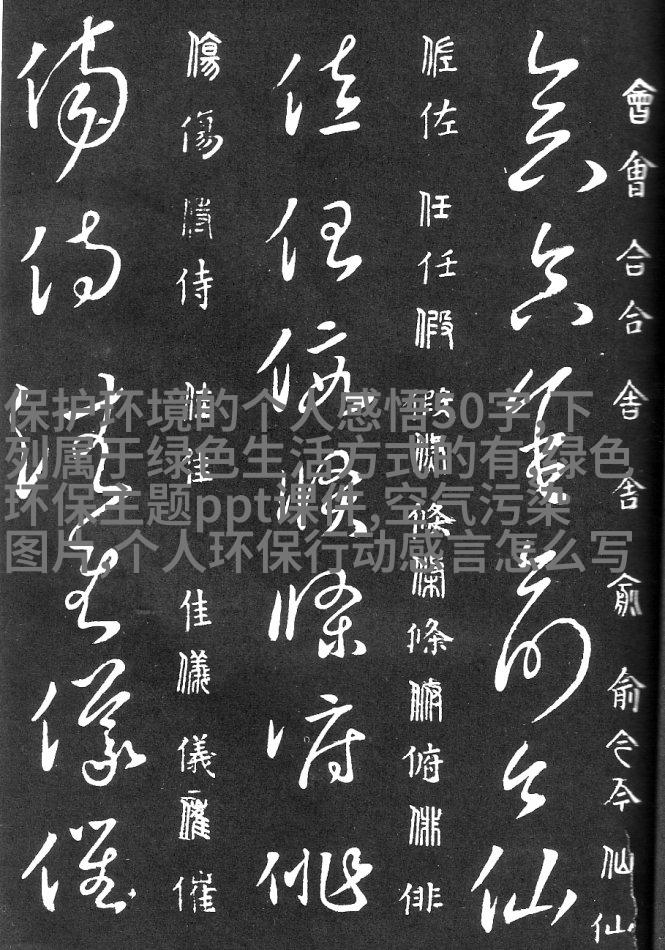 會會合合舍舍俞俞令令仙仙
會合舍俞令仙
佐佐任任假條條俯俳
佐任假條俯俳
傷傷侍侍佳佳儀儀催催
傷侍佳儀催
保护环境的个人感悟50字,下
列属于绿色生活方式的有,绿色
环保主题ppt课件,空气污染
图片,个人环保行动感言怎么写